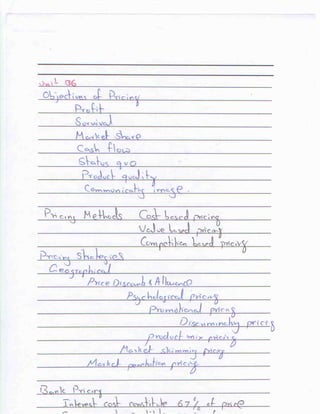 Unit 06
Objectives of Pricing
Profit
Survival
Market Share
Cash flow
Status quo
Product quality
Communicating image.
Pricing Methods Cost based pricing
Value based pricing
Competition based pricing
Pricing Strategies
Geographical
Price Discounts & Allowance
Psychological pricing
Promotional pricing
Discriminating pricing
product mix pricing
Market skimming pricing
Market penetration pricing
Book Pricing
Interest cost constitute 67% of price